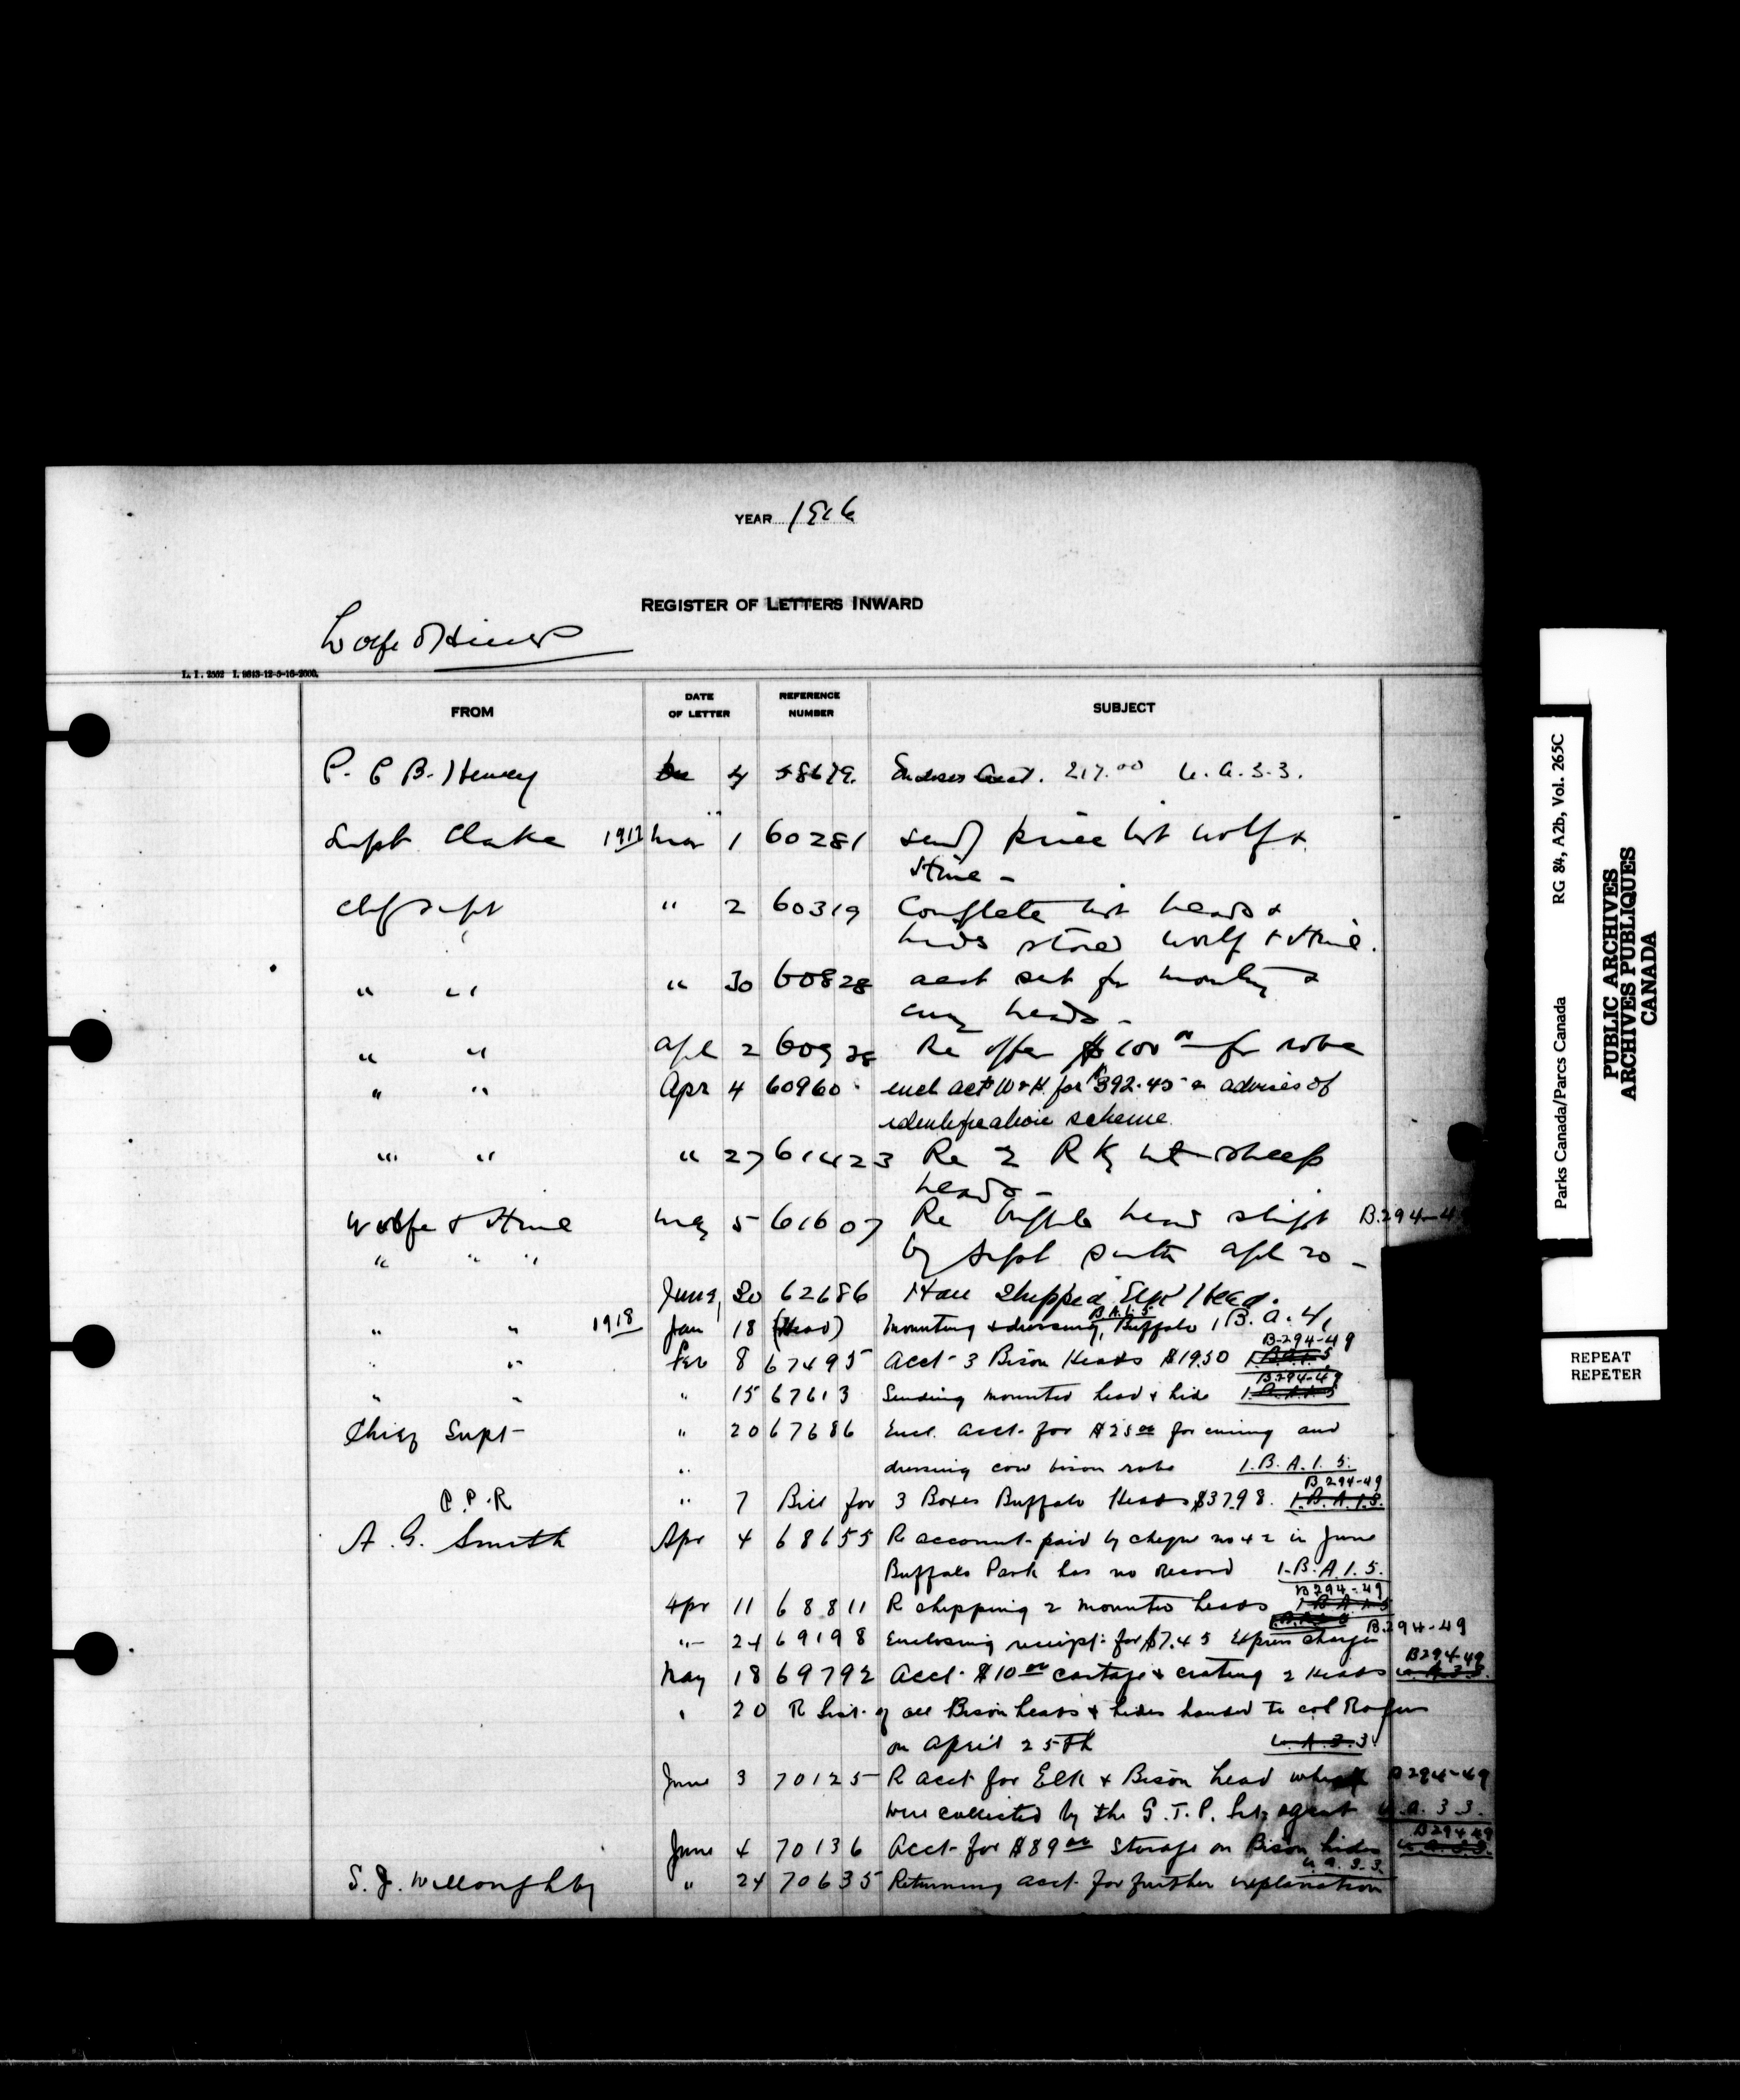 YEAR 1916
REGISTER OF LETTERS INWARD
Wolfe & Hine
L. I. 2552 I. 9643-12-5-16-2000.
FROM DATE OF LETTER REFERENCE NUMBER SUBJECT
P. C B. Hervey Dec 4 58679. Encloses Acct. 217.00 U.A.3.3.
Supt Clarke 1917 Mar 1 60281 send price list Wolf &
Hine -
Chf Supt " 2 60319 Complete list heads &
hides stored Wolf & Hine.
" " " 30 60828 acct sent for mounting &
heads -
" " Apl 2 60928 Re offer $100 00 for robe
" " Apr 4 60960 encl acct W & H. for $392.45 & advises of
identification scheme.
" " " 27 61423 Re 2 R Ky Mt sheep
heads -
Wolfe & Hine May 5 61607 Re buffalo head shipt B.294-4
" " " by Supt Smith Apl 20 -
June, 30 62686 Have shipped Elk Head.
" " 1918 Jan 18 (Head) Mounting & dressing, Buffalo 1.B.A.4,
B.A.1.5
B-294-49
" " Feb 8 67495 Acct- 3 Bison Heads $19.50 1.B.A.1.5
B294-49
" " " 15 67613 Sending mounted head & hide 1.B.A.1.5
Chief Supt- " 20 67686 Encl. acct. for $25 00 for curing and
" dressing cow bison robe 1.B.A.1.5.
B294-49
C.P.R " 7 Bill for 3 Boxes Buffalo Heads $37.98. 1.B.A.1.5.
A. G. Smith Apr 4 68655 R account paid by cheque no 42 in June
Buffalo Park has no record 1.B.A.1.5.
B294-49
Apr 11 68811 R shipping 2 mounted heads 1.B.A.1.5
" 24 69198 Enclosing receipt: for $7.45 Express charges B.294-49
B294-49
May 18 69792 Acct. $10 00 cartage & crating 2 Heads U.A.3.3.
" 20 R List of all Bison heads & hides handed to Col Rogers
on April 25th U.A.3.3
June 3 70125 R acct for Elk & Bison head which B294-49
were collected by the G.T.P. agent U.A.3.3.
B29449
June 4 70136 Acct- for $89 00 storage on Bison hides U.A.3.3.
U.A.3.3.
S. J. Willoughby " 24 70635 Returning acct. for further explanation
Parks Canada/Parcs Canada RG 84, A2b, Vol. 265C
PUBLIC ARCHIVES
ARCHIVES PUBLIQUES
CANADA
REPEAT
REPETER